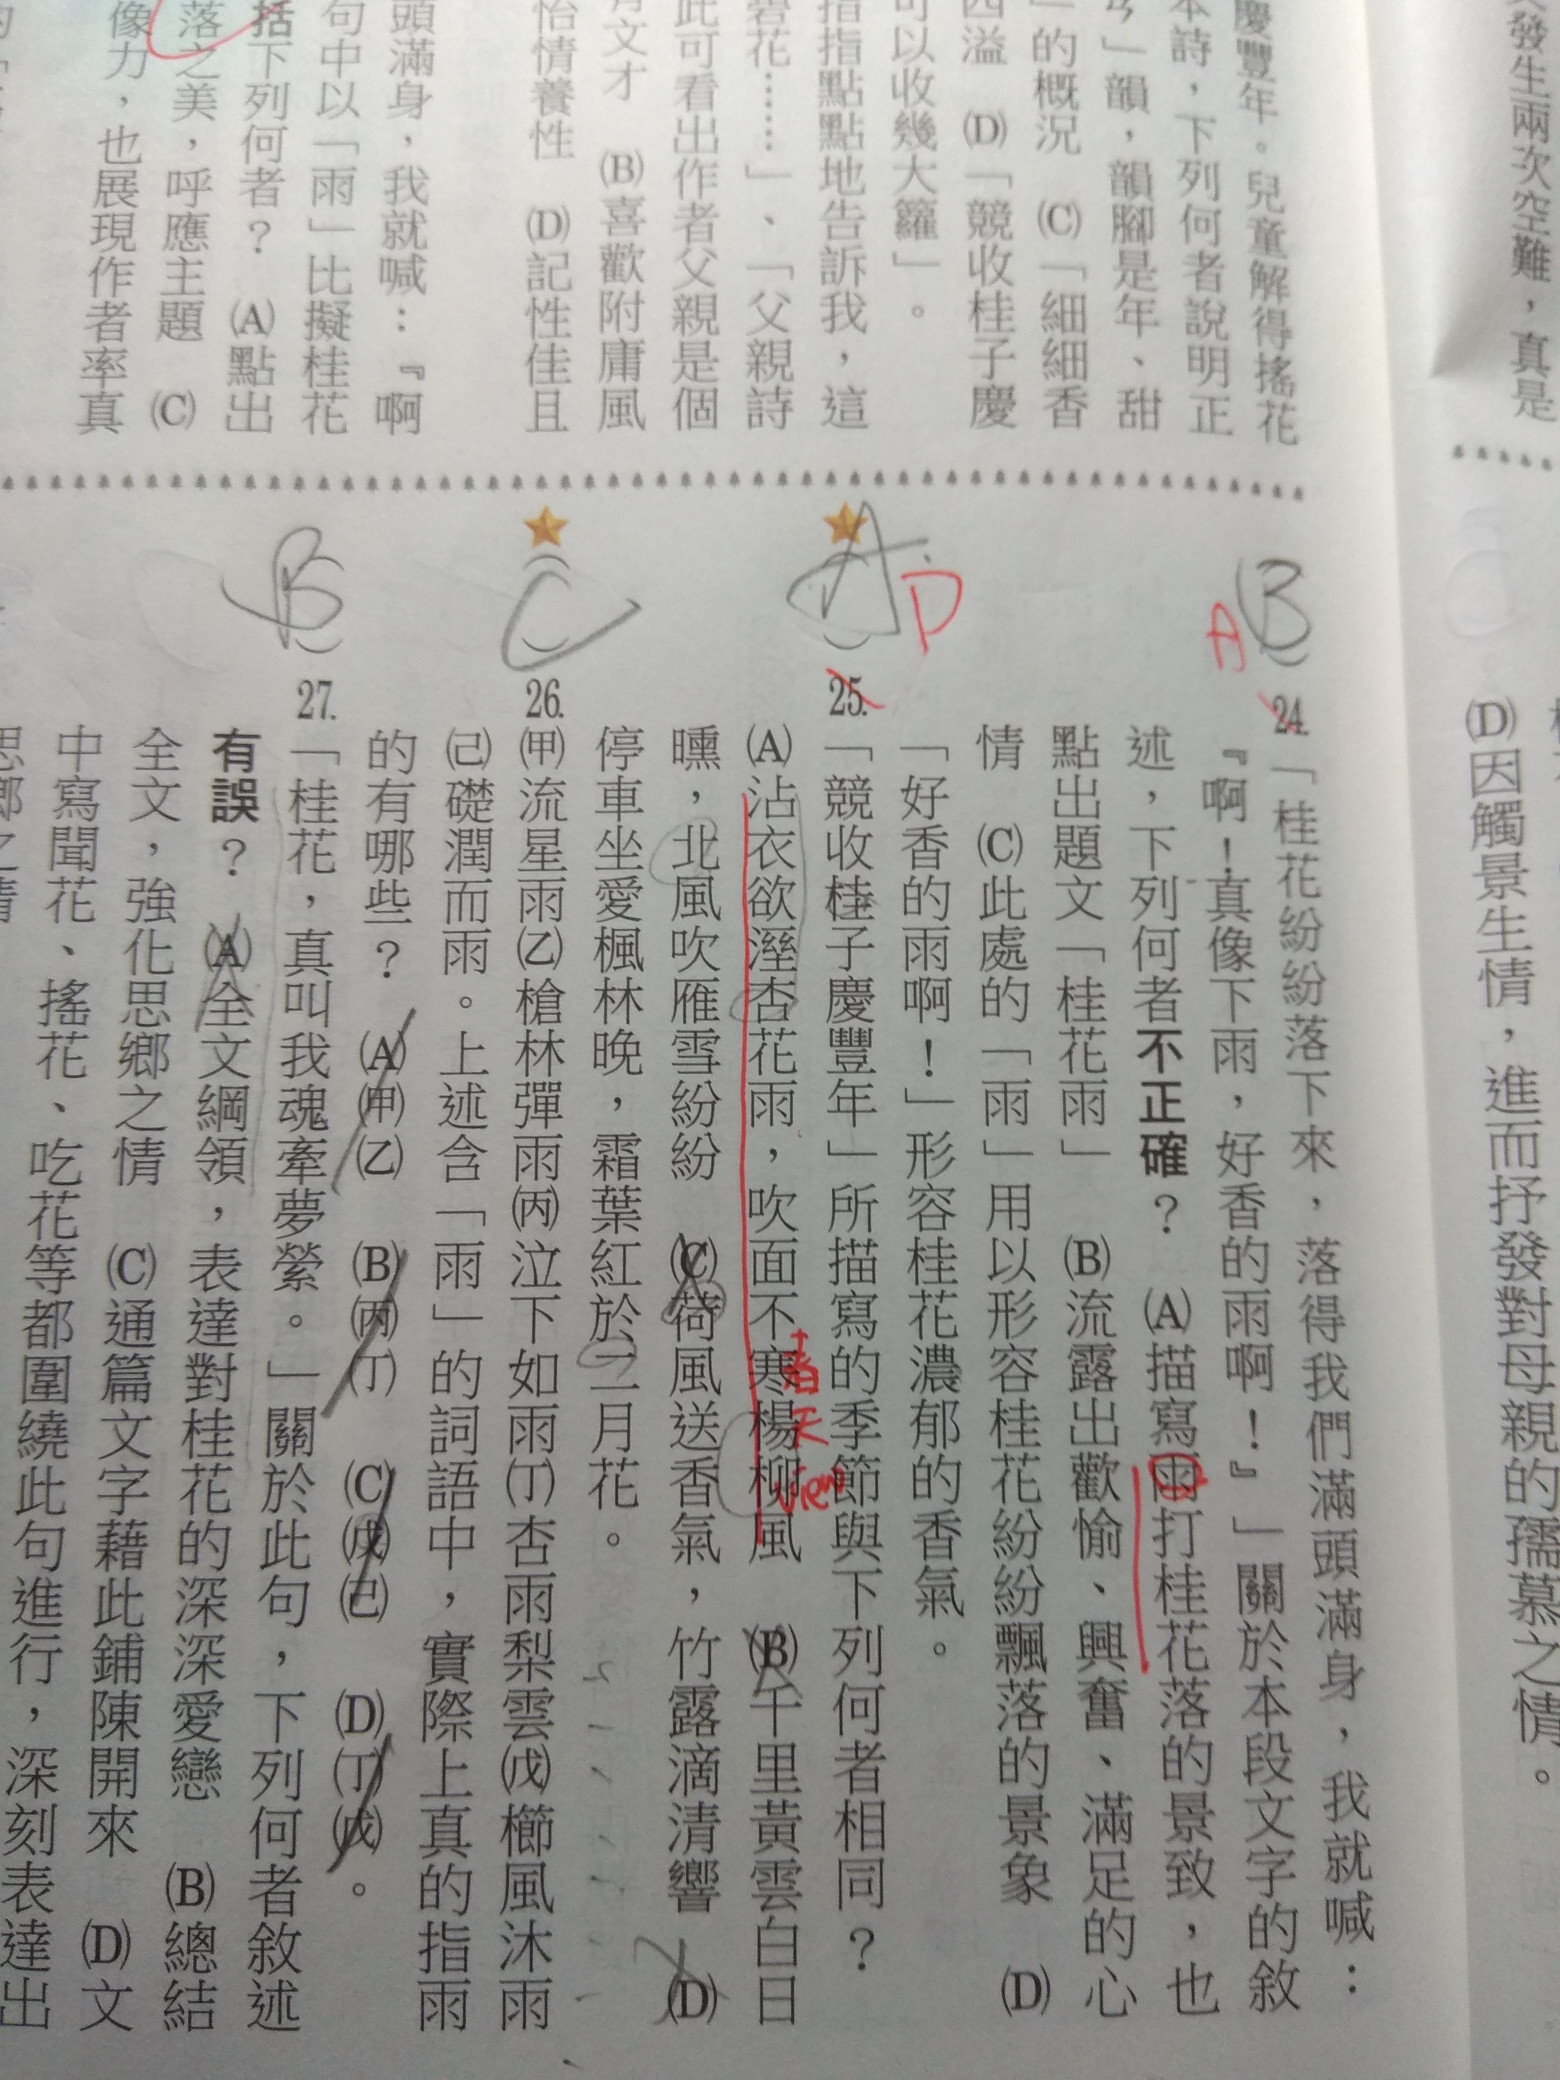 發生兩次空難，真是
慶豐年。兒童解得搖花
本詩，下列何者說明正
」韻，韻腳是年、甜
」的概況　(C)「細細香
四溢　(D)「競收桂子慶
可以收幾大籮」。
指指點點地告訴我，這
碧花……」、「父親詩
此可看出作者父親是個
有文才　(B)喜歡附庸風
怡情養性　(D)記性佳且
頭滿身，我就喊：『啊
句中以「雨」比擬桂花
括下列何者？　(A)點出
落之美，呼應主題　(C)
像力，也展現作者率真
(D)因觸景生情，進而抒發對母親的孺慕之情。
B
A
24.「桂花紛紛落下來，落得我們滿頭滿身，我就喊：
『啊！真像下雨，好香的雨啊！』」關於本段文字的敘
述，下列何者不正確？　(A)描寫雨打桂花落的景致，也
點出題文「桂花雨」　(B)流露出歡愉、興奮、滿足的心
情　(C)此處的「雨」用以形容桂花紛紛飄落的景象　(D)
「好香的雨啊！」形容桂花濃郁的香氣。
A
D
25.「競收桂子慶豐年」所描寫的季節與下列何者相同？
(A)沾衣欲溼杏花雨，吹面不寒楊柳風　(B)千里黃雲白日
春天
view
曛，北風吹雁雪紛紛　(C)荷風送香氣，竹露滴清響　(D)
停車坐愛楓林晚，霜葉紅於二月花。
C
26.(甲)流星雨(乙)槍林彈雨(丙)泣下如雨(丁)杏雨梨雲(戊)櫛風沐雨
(己)礎潤而雨。上述含「雨」的詞語中，實際上真的指雨
的有哪些？　(A)(甲)(乙)　(B)(丙)(丁)　(C)(戊)(己)　(D)(丁)(戊)。
B
27.「桂花，真叫我魂牽夢縈。」關於此句，下列何者敘述
有誤？　(A)全文綱領，表達對桂花的深深愛戀　(B)總結
全文，強化思鄉之情　(C)通篇文字藉此鋪陳開來　(D)文
中寫聞花、搖花、吃花等都圍繞此句進行，深刻表達出
思鄉之情